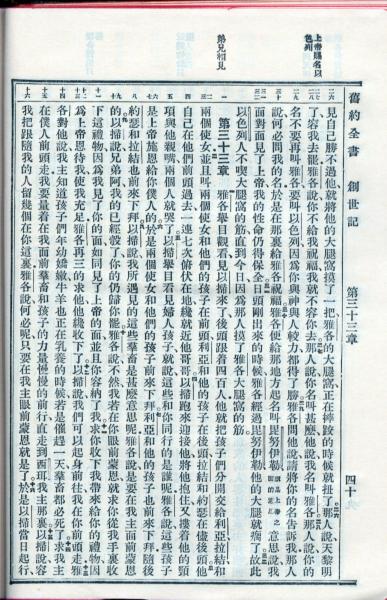 上帝賜名以色列
弟兄相見
舊約全書 創世記 第三十三章 四十
見自己勝不過他就將他的大腿窩摸了一把雅各的大腿窩正在摔跤的時候就扭了那人說天黎明
了容我去罷雅各說你不給我祝福我就不容你去那人說你名叫甚麼他說我名叫雅各那人說你的
名不要再叫雅各要叫以色列因為你與神與人較力都得了勝雅各問他說請將你的名告訴我那人
說何必問我的名於是在那裏給雅各祝福雅各便給那地方起名叫毘努伊勒意思說我
面對面見了上帝我的性命仍得保全日頭剛出來的時候雅各經過毘努伊勒他的大腿就瘸了故此
以色列人不喫大腿窩的筋直到今日因為那人摸了雅各大腿窩的筋
第三十三章 雅各舉目觀看見以掃來了後頭跟着四百人他就把孩子們分開交給利亞拉結和
兩個使女並且叫兩個使女和他們的孩子在前頭利亞和他的孩子在後頭拉結和約瑟在儘後頭他
自己在他們前頭過去一連七次俯伏在地纔就近他哥哥以掃跑來迎接他將他抱住又摟着他的頸
項與他親嘴兩個人就哭了以掃舉目看見婦人孩子就說這些和你同行的是誰呢雅各說這些孩子
是上帝施恩給你僕人的於是兩個使女和他們的孩子前來下拜利亞和他的孩子也前來下拜隨後
約瑟和拉結也前來下拜以掃說我所遇見的這些羣畜是甚麼意思呢雅各說是要在我主面前蒙恩
的以掃說兄弟阿我的已經彀了你的仍歸你罷雅各說不然我若在你眼前蒙恩就求你從我手裏收
下這禮物因為我見了你的面如同見了上帝的面並且你容納了我求你收下我帶來給你的禮物因
為上帝恩待我使我充足雅各再三的求他他纔收下了以掃說我們可以起身前往我在你前頭走雅
各對他說我主知道孩子們年幼嬌嫩牛羊也正在乳養的時候若是催趕一天羣畜都必死了求我主
在僕人前頭走我要量着在我面前羣畜和孩子的力量慢慢的前行直走到西珥我主那裏以掃說容
我把跟隨我的人留幾個在你這裏雅各說何必呢只要在我主眼前蒙恩就是了於是以掃當日起行